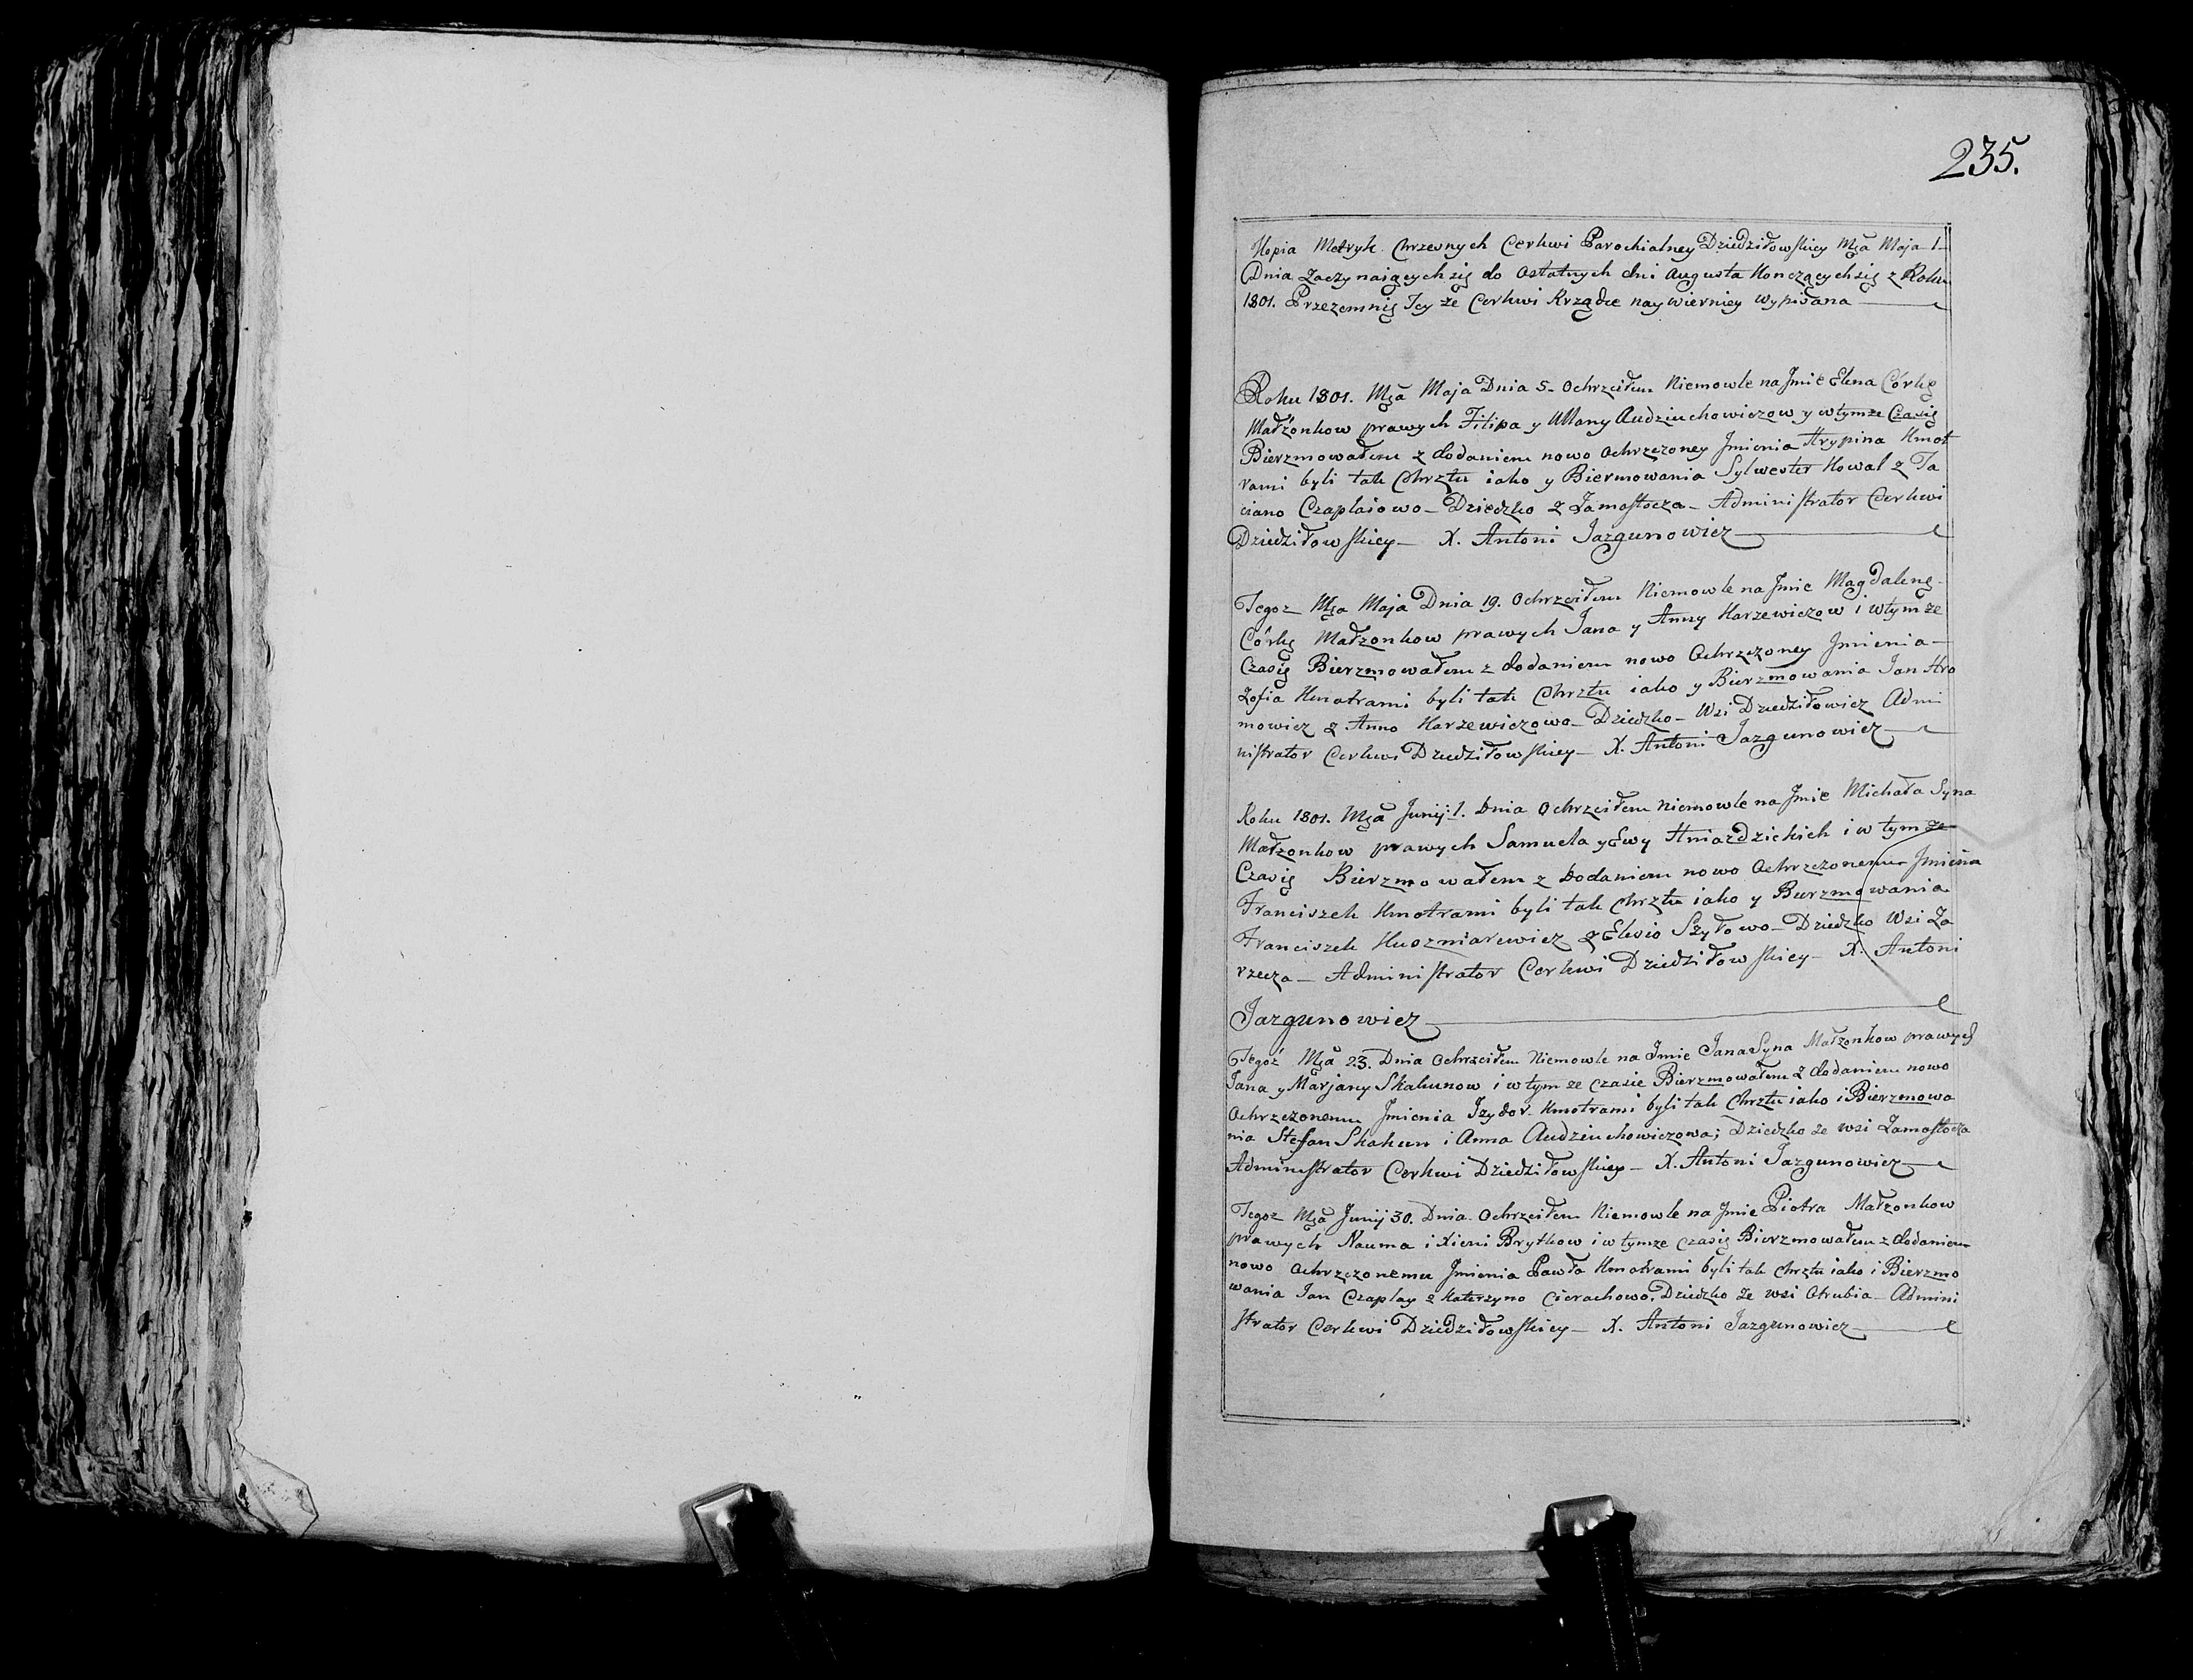 235.
Kopia Metryk Chrzesnych Cerkwi Parochialney Dziedziłowskiey Mca Maja 1
Dnia Zaczynaiących się do Ostatnych dni Augusta Konczących się z Roku
1801. Przezemnię Tey że Cerkwi Krządce nay wierniey wypisana
Roku 1801. Mca Maja Dnia 5 Ochrzciłem Niemowle na Jmie Elena Córkę
Małżonkow prawych Filipa y Ullany Audziuchowiczow y w tymże Czasię
Bierzmowałem z dodaniem nowo Ochrzczoney Jmienia Hrypina Kmot
rami byli tak Chrztu iako y Biermowania Sylwester Kowal z Ta
ciano Czaplaiowo Dziedzko z Zamostocza Administrator Cerkwi
Dziedziłowskiey X. Antoni Jazgunowicz
Tegoz Mca Maja Dnia 19. Ochrzciłem Niemowle na Jmie Magdalenę
Córkę Małzonkow prawych Jana y Anny Karzewiczow i w tym ze
Czasię Bierzmowałem z dodaniem nowo Ochrzczoney Jmienia
Zofia Kmotrami byli tak Chrztu iako y Bierzmowania Jan Hro
mowicz z Anno Karzewiczowo Dziedzko Wsi Dziedziłowicz Admi
nistrator Cerkwi Dziedziłowskiey X. Antoni Jazgunowicz
Roku 1801. Mca Junij 1. Dnia Ochrzciłem niemowle na Jmie Michała Syna
Małzonkow prawych Samuela y Ewy Hniazdzickich i w tym ze
Czasię Bierzmowałem z Dodaniem nowo Ochrzczonemu Jmienia
Franciszek Kmotrami byli tak chrztu iako y Bierzmowania
Franciszek Kuszniarewicz z Elesio Szyłowo Dziedzko Wsi Za
rzecza Administrator Cerkwi Dziedziłowskiey X. Antoni
Jazgunowicz
Tegoż Mca 23. Dnia Ochrzciłem Niemowle na Jmie Jana Syna Małzonkow prawych
Jana y Marjany Skakunow i w tym ze czasie Bierzmowałem z dodaniem nowo
Ochrzczonemu Jmienia Jzydor Kmotrami byli tak Chrztu iako i Bierzmowa
nia Stefan Skakun i Anna Audziuchowiczowa; Dziedzko ze wsi Zamostocza
Administrator Cerkwi Dziedziłowskiey X. Antoni Jazgunowicz
Tegoz Mca Junij 30. Dnia Ochrzciłem Niemowle na Jmie Piotra Małzonkow
prawych Nauma i Xieni Brytkow i w tymze czasię Bierzmowałem z dodaniem
nowo Ochrzczonemu Jmienia Pawła Kmotrami byli tak chrztu iako i Bierzmo
wania Jan Czaplay z Katerzyno Cierachowo. Dziedzko Ze wsi Otrubia Admini
strator Cerkwi Dziedziłowskiey X. Antoni Jazgunowicz